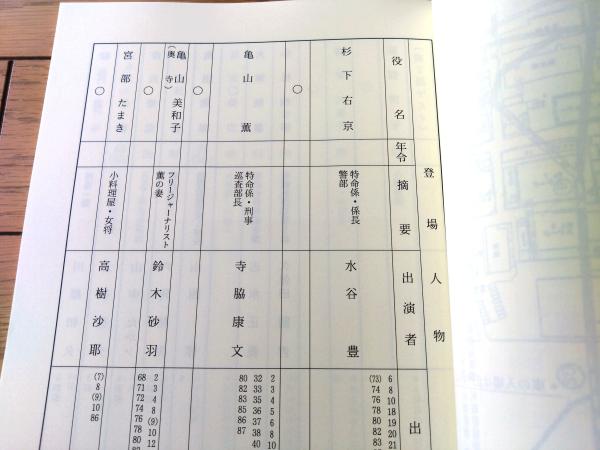 登場人物
役名
年令
摘要
出演者
出
杉下右京
特命係・係長
警部
水谷 豊
6
8
10
18
19
20
21
(73)
74
76
78
80
82
83
○
亀山 薫
特命係・刑事
巡査部長
寺脇康文
2
3
4
5
6
8
10
32
33
35
36
37
38
40
80
82
83
85
86
87
○
亀山美和子
(奥寺)
フリージャーナリスト
薫の妻
鈴木砂羽
2
3
4
8
(9)
10
12
68
71
72
74
76
78
80
○
宮部たまき
小料理屋・女将
高樹沙耶
(7)
8
(9)
10
86
○